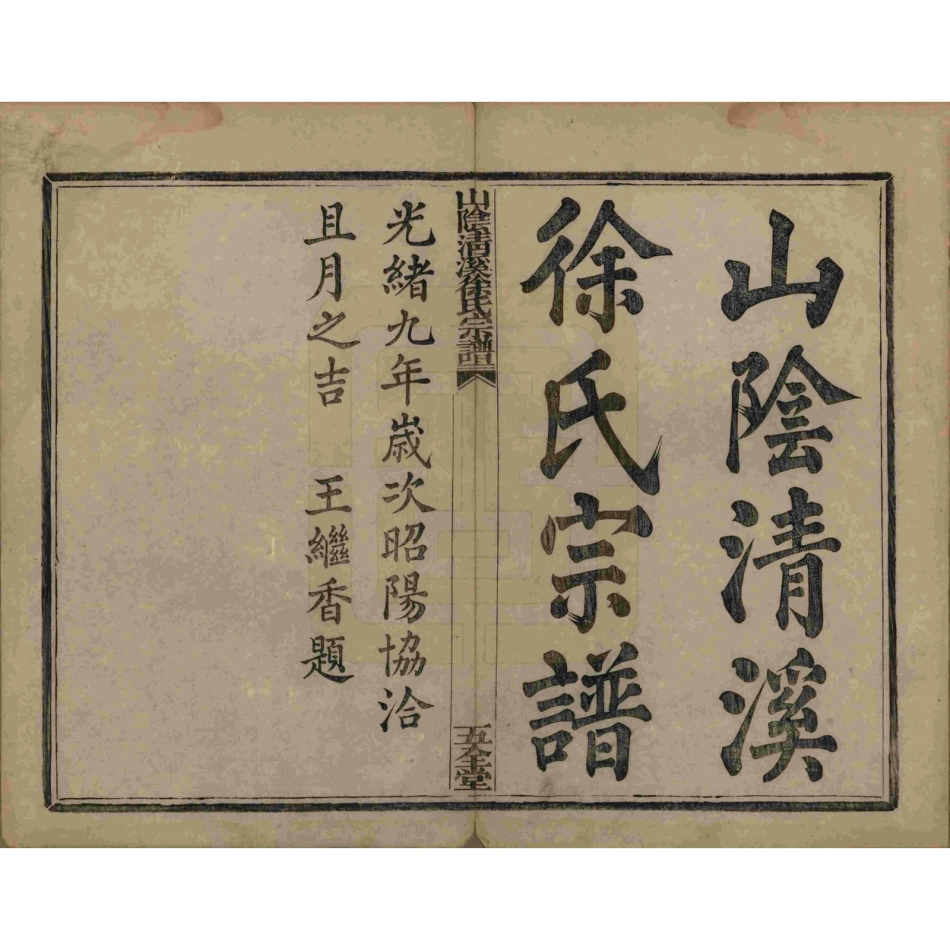 山陰清溪
徐氏宗譜
山陰清溪徐氏宗譜
五全堂
光緒九年歲次昭陽協洽
且月之吉　王繼香題